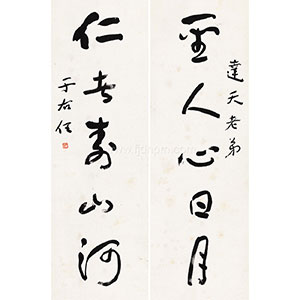 達天老弟
聖人心日月
仁者壽山河
于右任